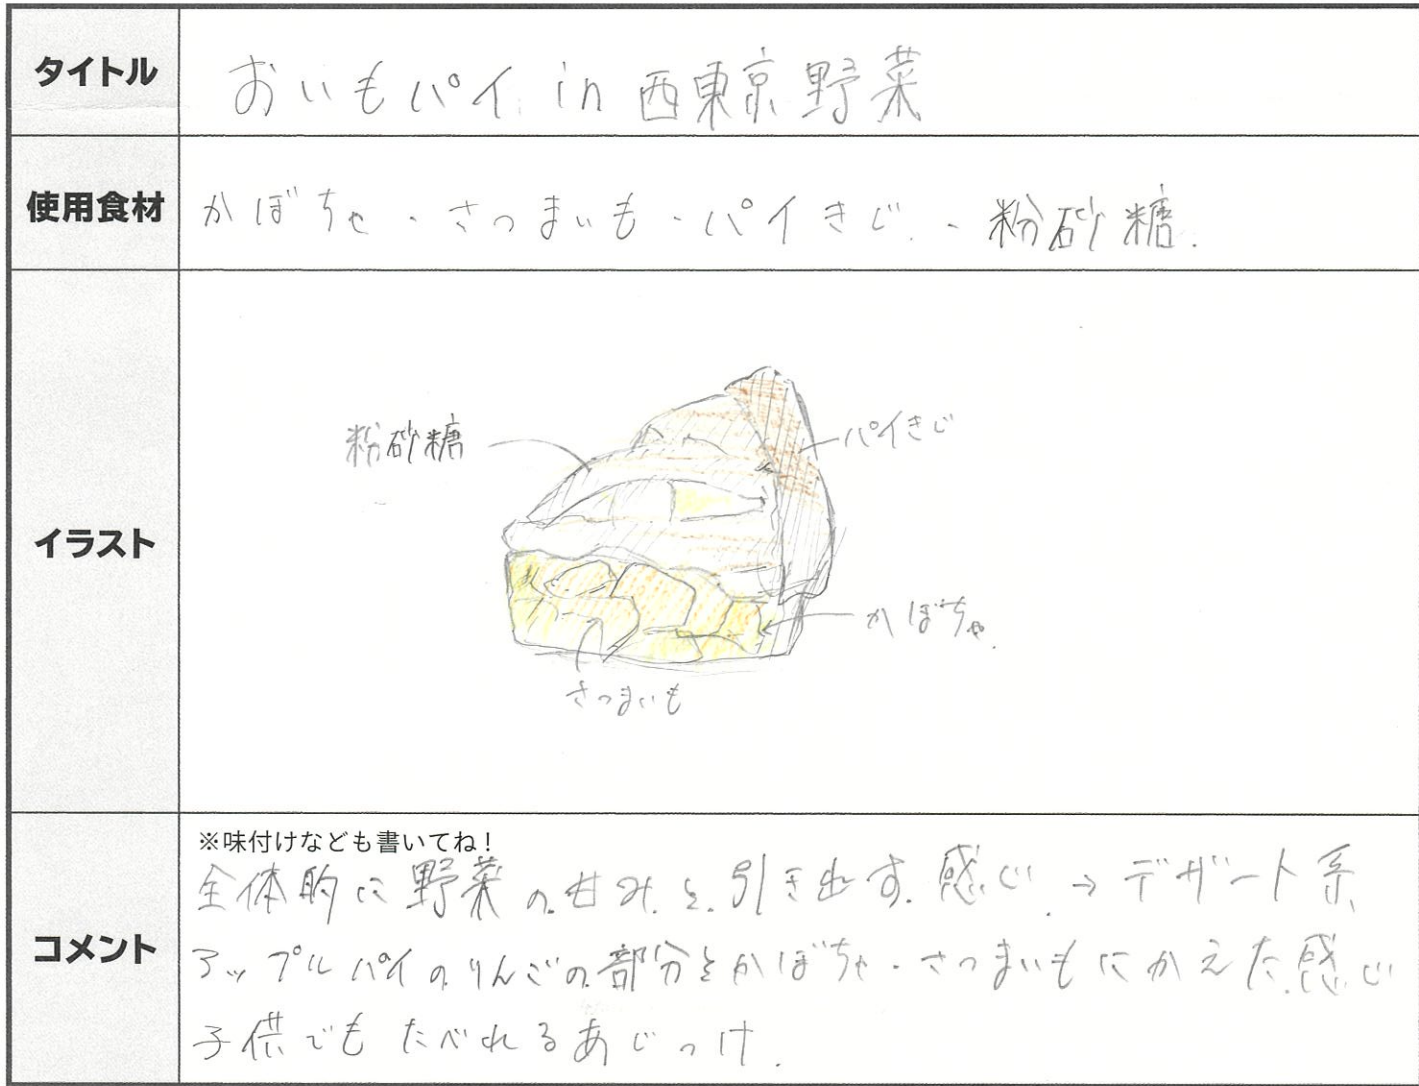 タイトル
おいもパイ in 西東京野菜
使用食材
かぼちゃ・さつまいも・パイきじ・粉砂糖.
イラスト
粉砂糖
パイきじ
かぼちゃ.
さつまいも
コメント
※味付けなども書いてね！
全体的に野菜の甘みを引き出す感じ→デザート系
アップルパイのりんごの部分をかぼちゃ・さつまいもにかえた感じ
子供でもたべれるあじつけ.